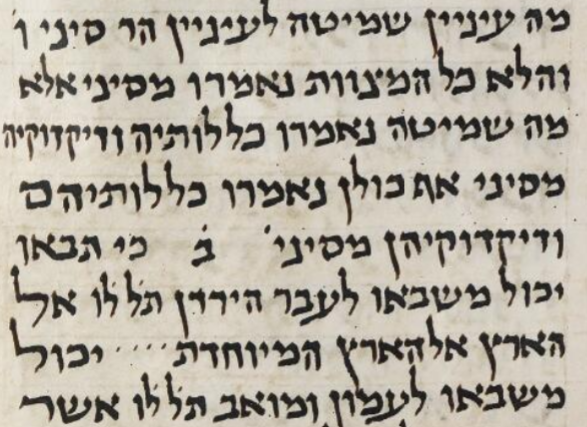 מה עיניין שמיטה לעיניין הר סיני ו׳
והלא כל המצוות נאמרו מסיני אלא
מה שמיטה נאמרו כללותיה ודיקדוקיה
מסיני אף כולן נאמרו כללותיהם
ודיקדוקיהן מסיני׳ ב כי תבאו
יכול משבאו לעבר הירדן תל לו אל
הארץ אל הארץ המיוחדת ׳׳׳׳ יכול
משבאו לעמון ומואב תל לו אשר